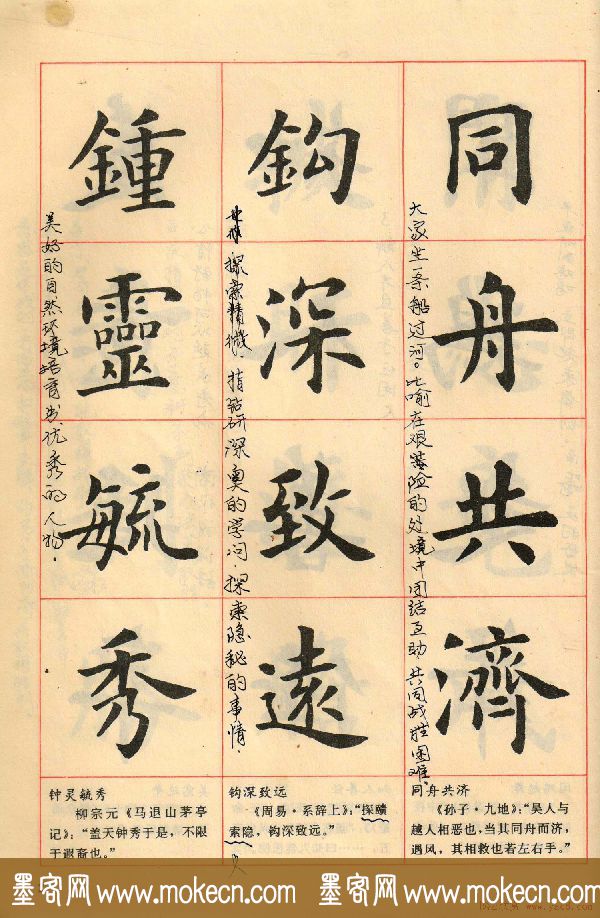 同舟共濟
大家坐一条船过河。比喻在艰险的处境中团结互助，共同战胜困难。
鈎深致遠
探索精微，指钻研深奥的学问，探索隐秘的事情。
鍾靈毓秀
美好的自然环境培育出优秀的人物。
钟灵毓秀
柳宗元《马退山茅亭
记》：“盖天钟秀于是，不限
于遐裔也。”
钩深致远
《周易·系辞上》：“探赜
索隐，钩深致远。”
同舟共济
《孙子·九地》：“吴人与
越人相恶也，当其同舟而济，
遇风，其相救也若左右手。”
墨客网 www.mokecn.com 墨客网 www.mokecn.com